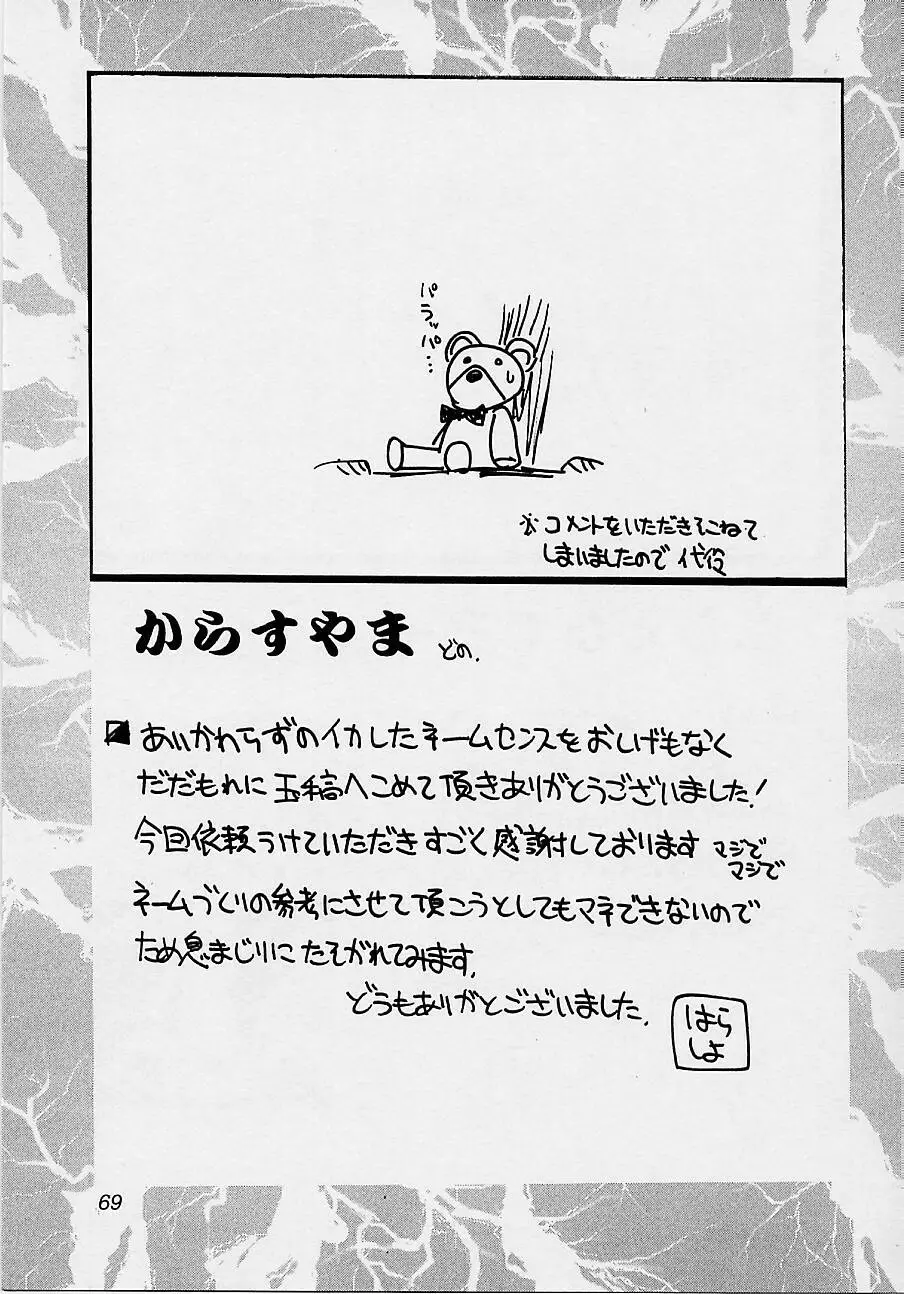 パラッパ…
※コメントをいただきそこねて
しまいましたので代役
からすやま どの.
あいかわらずのイカしたネームセンスをおしげもなく
だだもれに玉稿へこめて頂きありがとうございました!
今回依頼うけていただきすごく感謝しております マジで
マジで
ネームづくりの参考にさせて頂こうとしてもマネできないので
ため息まじりにたそがれてみます.
どうもありがとございました.
はら
しょ
69